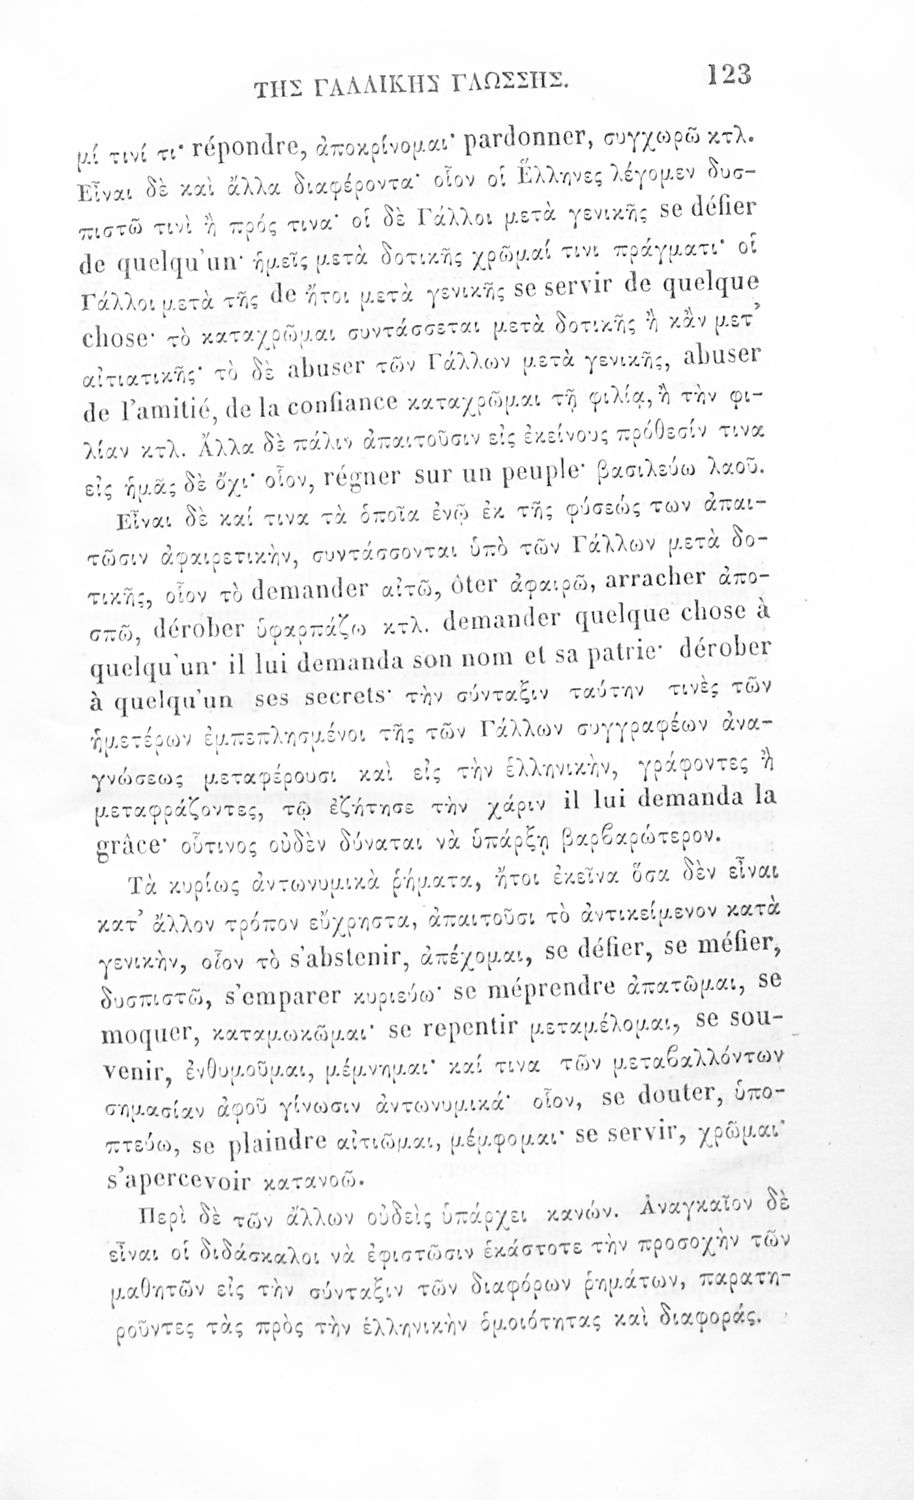 ΤΗΣ ΓΑΛΛΙΚΗΣ ΓΛΩΣΣΗΣ. 123
μί τινί τι· répondre, ἀποκρίνομαι· pardonner, συγχωρῶ κτλ.
Εἶναι δὲ καὶ ἄλλα διαφέροντα· οἷον οἱ Ἕλληνες λέγομεν δυσ-
πιστῶ τινὶ ἢ πρός τινα· οἱ δὲ Γάλλοι μετὰ γενικῆς se défier
de quelqu'un· ἡμεῖς μετὰ δοτικῆς χρῶμαί τινι πράγματι· οἱ
Γάλλοι μετὰ τῆς de ἤτοι μετὰ γενικῆς se servir de quelque
chose· τὸ καταχρῶμαι συντάσσεται μετὰ δοτικῆς ἢ κἂν μετ'
αἰτιατικῆς· τὸ δὲ abuser τῶν Γάλλων μετὰ γενικῆς, abuser
de l'amitié, de la confiance καταχρῶμαι τῇ φιλίᾳ, ἢ τὴν φι-
λίαν κτλ. Ἄλλα δὲ πάλιν ἀπαιτοῦσιν εἰς ἐκείνους πρόθεσίν τινα
εἰς ἡμᾶς δὲ ὄχι· οἷον, régner sur un peuple· βασιλεύω λαοῦ.
Εἶναι δὲ καί τινα τὰ ὁποῖα ἐνῷ ἐκ τῆς φύσεώς των ἀπαι-
τῶσιν ἀφαιρετικὴν, συντάσσονται ὑπὸ τῶν Γάλλων μετὰ δο-
τικῆς, οἷον τὸ demander αἰτῶ, ôter ἀφαιρῶ, arracher ἀπο-
σπῶ, dérober ὑφαρπάζω κτλ. demander quelque chose à
quelqu'un· il lui demanda son nom et sa patrie· dérober
à quelqu'un ses secrets· τὴν σύνταξιν ταύτην τινὲς τῶν
ἡμετέρων ἐμπεπλησμένοι τῆς τῶν Γάλλων συγγραφέων ἀνα-
γνώσεως μεταφέρουσι καὶ εἰς τὴν ἑλληνικὴν, γράφοντες ἢ
μεταφράζοντες, τῷ ἐζήτησε τὴν χάριν il lui demanda la
grâce· οὗτινος οὐδὲν δύναται νὰ ὑπάρξῃ βαρϐαρώτερον.
Τὰ κυρίως ἀντωνυμικὰ ῥήματα, ἤτοι ἐκεῖνα ὅσα δὲν εἶναι
κατ' ἄλλον τρόπον εὔχρηστα, ἀπαιτοῦσι τὸ ἀντικείμενον κατὰ
γενικὴν, οἷον τὸ s'abstenir, ἀπέχομαι, se défier, se méfier,
δυσπιστῶ, s'emparer κυριεύω· se méprendre ἀπατῶμαι, se
moquer, καταμωκῶμαι· se repentir μεταμέλομαι, se sou-
venir, ἐνθυμοῦμαι, μέμνημαι· καί τινα τῶν μεταϐαλλόντων
σημασίαν ἀφοῦ γίνωσιν ἀντωνυμικά· οἷον, se douter, ὑπο-
πτεύω, se plaindre αἰτιῶμαι, μέμφομαι· se servir, χρῶμαι·
s'apercevoir κατανοῶ.
Περὶ δὲ τῶν ἄλλων οὐδεὶς ὑπάρχει κανών. Ἀναγκαῖον δὲ
εἶναι οἱ διδάσκαλοι νὰ ἐφιστῶσιν ἑκάστοτε τὴν προσοχὴν τῶν
μαθητῶν εἰς τὴν σύνταξιν τῶν διαφόρων ῥημάτων, παρατη-
ροῦντες τὰς πρὸς τὴν ἑλληνικὴν ὁμοιότητας καὶ διαφοράς.